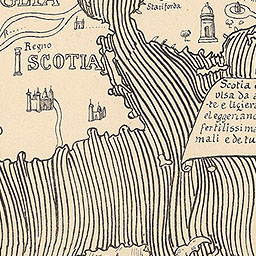 Staniforda
Regno
SCOTIA
Scotia è
visa da a
te e ligiera
eleggerianc
fertilissima
mali e de tu